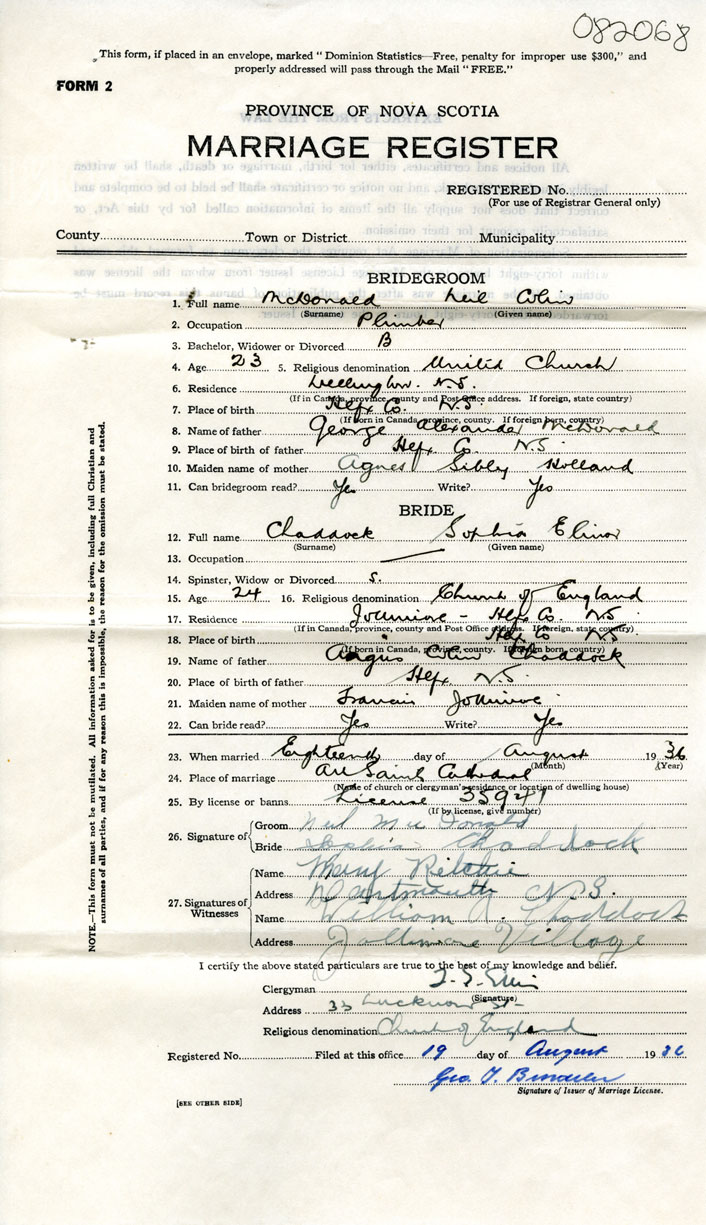 082068
„This form, if placed in an envelope, marked "Dominion Statistics—Free, penalty for improper use $300," and
properly addressed will pass through the Mail "FREE."
FORM 2
PROVINCE OF NOVA SCOTIA
MARRIAGE REGISTER
REGISTERED No.
(For use of Registrar General only)
County Town or District Municipality
BRIDEGROOM
1. Full name McDonald Neil Colin
(Surname) (Given name)
2. Occupation Plumber
3. Bachelor, Widower or Divorced B
4. Age 23 5. Religious denomination United Church
6. Residence Wellington. N.S.
(If in Canada, province, county and Post Office address. If foreign, state country)
7. Place of birth Hfx Co. N.S.
(If born in Canada, province, county. If foreign born, country)
8. Name of father George Alexander McDonald
9. Place of birth of father Hfx Co. N.S.
10. Maiden name of mother Agnes Sibly Holland
11. Can bridegroom read? Yes Write? Yes
BRIDE
12. Full name Chaddock Sophia Elinor
(Surname) (Given name)
13. Occupation —
14. Spinster, Widow or Divorced S.
15. Age 24 16. Religious denomination Church of England
17. Residence Jollimore - Hfx Co. NS
(If in Canada, province, county and Post Office address. If foreign, state country)
18. Place of birth Hfx Co NS
(If born in Canada, province, county. If foreign born, country)
19. Name of father Angus Chaddock
20. Place of birth of father Hfx N.S.
21. Maiden name of mother Francis Jollimore
22. Can bride read? Yes Write? Yes
23. When married Eighteenth day of August 1936
(Month) (Year)
24. Place of marriage All Saints Cathedral
(Name of church or clergyman's residence or location of dwelling house)
25. By license or banns License 35947
(If by license, give number)
26. Signature of Groom Neil McDonald
Bride Sophia Chaddock
27. Signatures of Witnesses Name Mary Ritchie
Address Dartmouth N.S.
Name William A. Chaddock
Address Jollimore Village
I certify the above stated particulars are true to the best of my knowledge and belief.
Clergyman
(Signature)
Address 33 Lucknow St-
Religious denomination Church of England
Registered No. Filed at this office 19 day of August 1936
Geo. T.
Signature of Issuer of Marriage License.
[SEE OTHER SIDE]
NOTE.—This form must not be mutilated. All information asked for is to be given, including full Christian and
surnames of all parties, and if for any reason this is impossible, the reason for the omission must be stated.